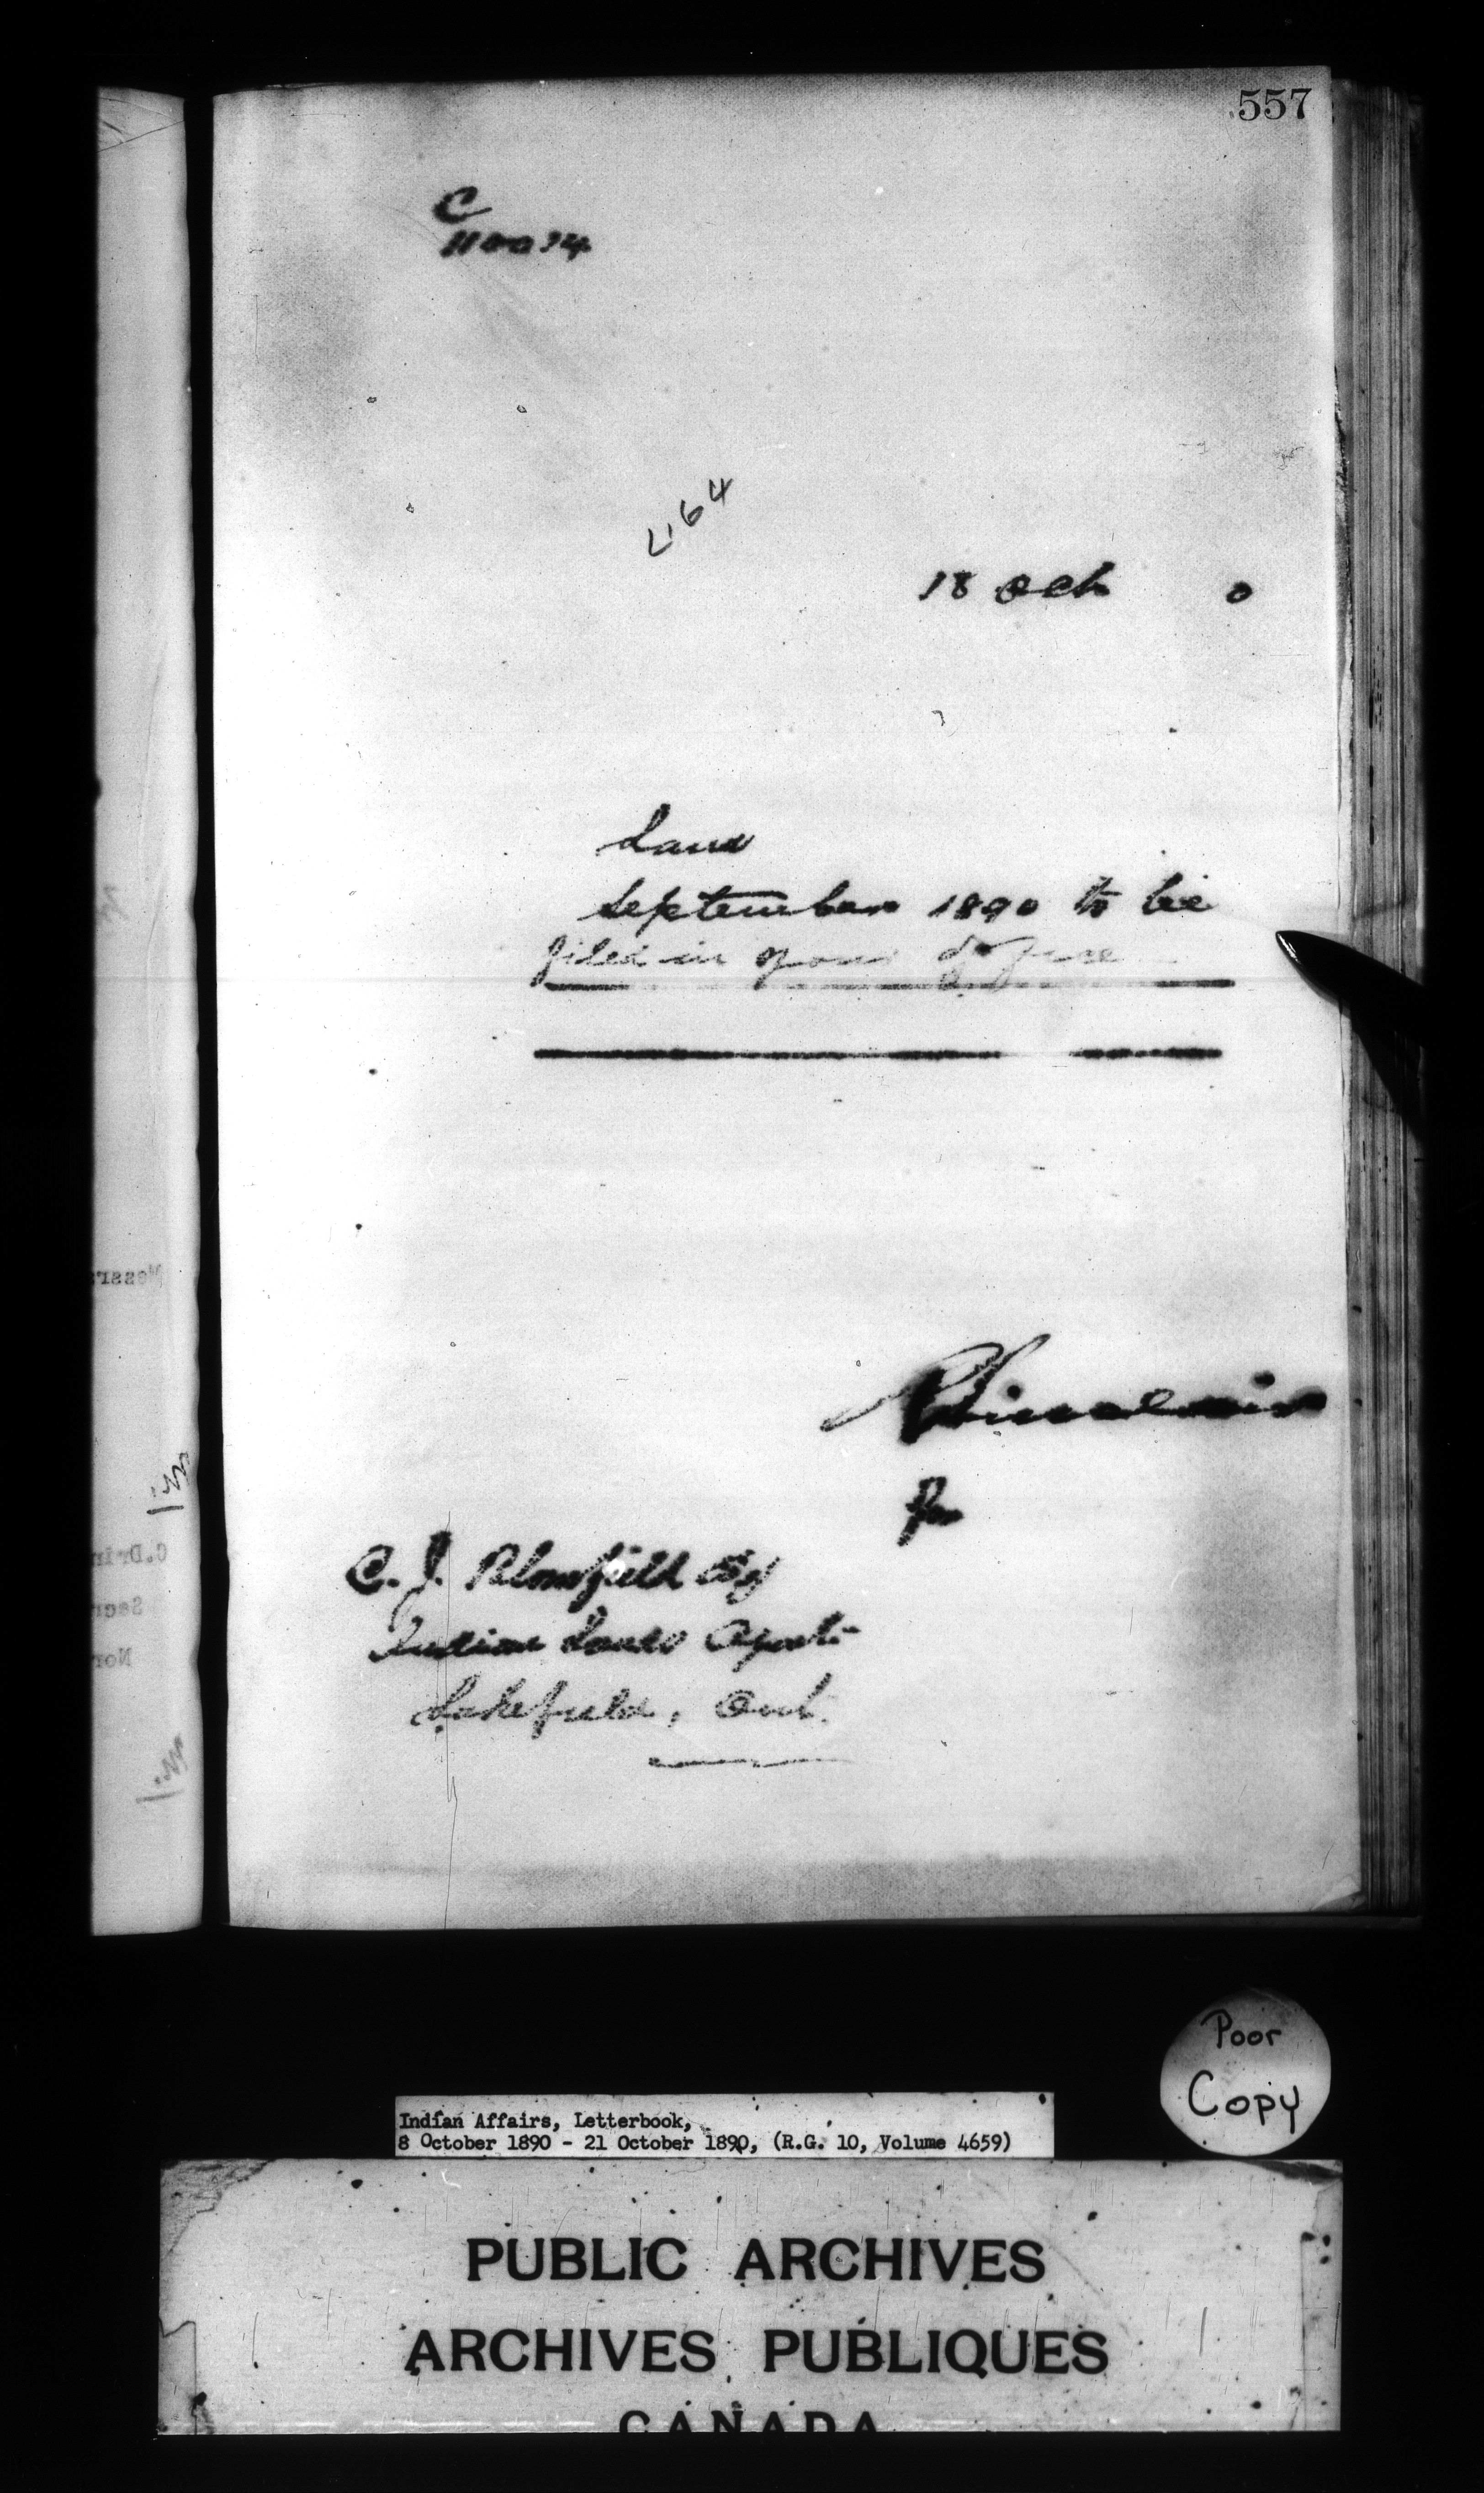 557
C
110034
L164
18 Oct 0
Land
September 1890 to be
filed in your office
RSinclair
for
C. J. Blomfield Esq
Indian Lands Agent
Lakefield, Ont.
Poor
Copy
Indian Affairs, Letterbook,
8 October 1890 - 21 October 1890, (R.G. 10, Volume 4659)
PUBLIC ARCHIVES
ARCHIVES PUBLIQUES
CANADA